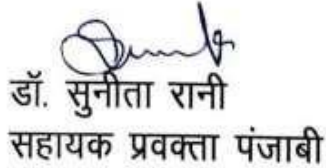 डॉ. सुनीता रानी
सहायक प्रवक्ता पंजाबी